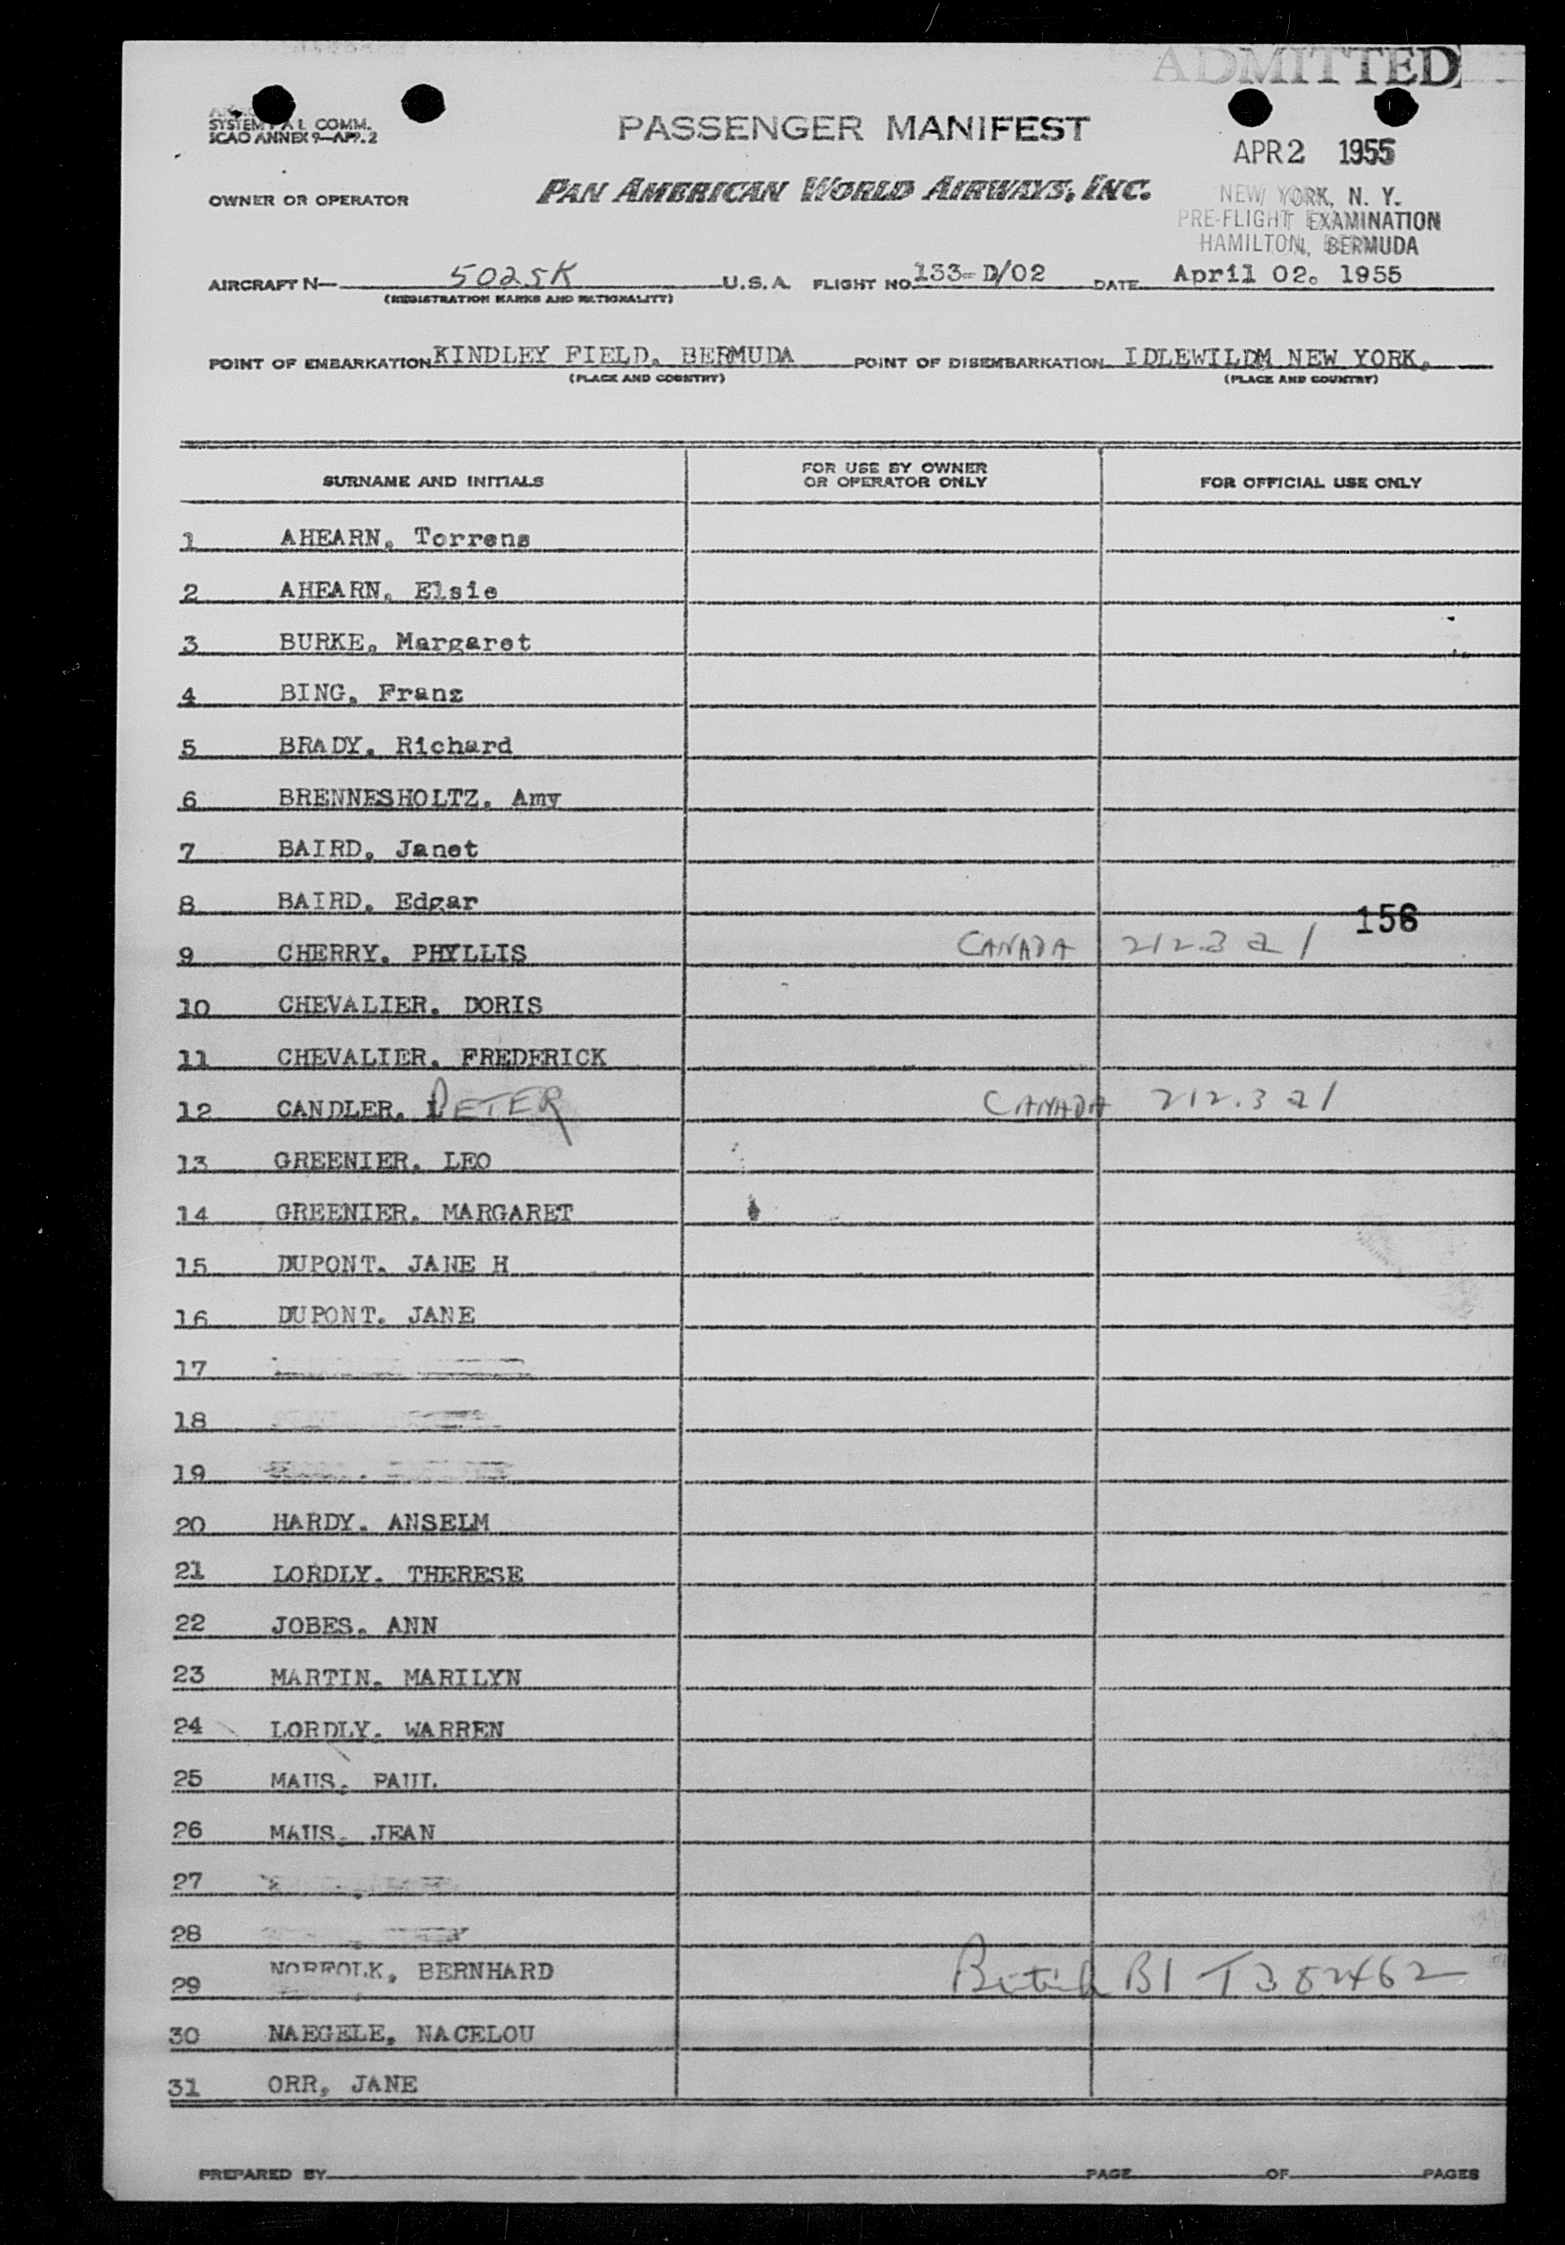 ADMITTED
SYSTEM P A L COMM.
ICAO ANNEX 9—APP. 2
PASSENGER MANIFEST
APR 2 1955
OWNER OR OPERATOR
PAN AMERICAN WORLD AIRWAYS, INC.
NEW YORK, N. Y.
PRE-FLIGHT EXAMINATION
HAMILTON, BERMUDA
AIRCRAFT N— 5025K U.S.A. FLIGHT NO. 133-D/02 DATE April 02. 1955
(REGISTRATION MARKS AND NATIONALITY)
POINT OF EMBARKATION KINDLEY FIELD, BERMUDA POINT OF DISEMBARKATION IDLEWILDM NEW YORK.
(PLACE AND COUNTRY) (PLACE AND COUNTRY)
SURNAME AND INITIALS FOR USE BY OWNER OR OPERATOR ONLY FOR OFFICIAL USE ONLY
1 AHEARN, Torrens
2 AHEARN, Elsie
3 BURKE, Margaret
4 BING, Franz
5 BRADY, Richard
6 BRENNESHOLTZ, Amy
7 BAIRD, Janet
8 BAIRD, Edgar
156
9 CHERRY, PHYLLIS CANADA 212.3 a 1
10 CHEVALIER, DORIS
11 CHEVALIER, FREDERICK
12 CANDLER, PETER CANADA 212.3 a 1
13 GREENIER, LEO
14 GREENIER, MARGARET
15 DUPONT, JANE H
16 DUPONT, JANE
17
18
19
20 HARDY, ANSELM
21 LORDLY, THERESE
22 JOBES, ANN
23 MARTIN, MARILYN
24 LORDLY, WARREN
25 MAUS, PAUL
26 MAUS, JEAN
27
28
29 NORFOLK, BERNHARD British B1 T382462
30 NAEGELE, NACELOU
31 ORR, JANE
PREPARED BY PAGE OF PAGES